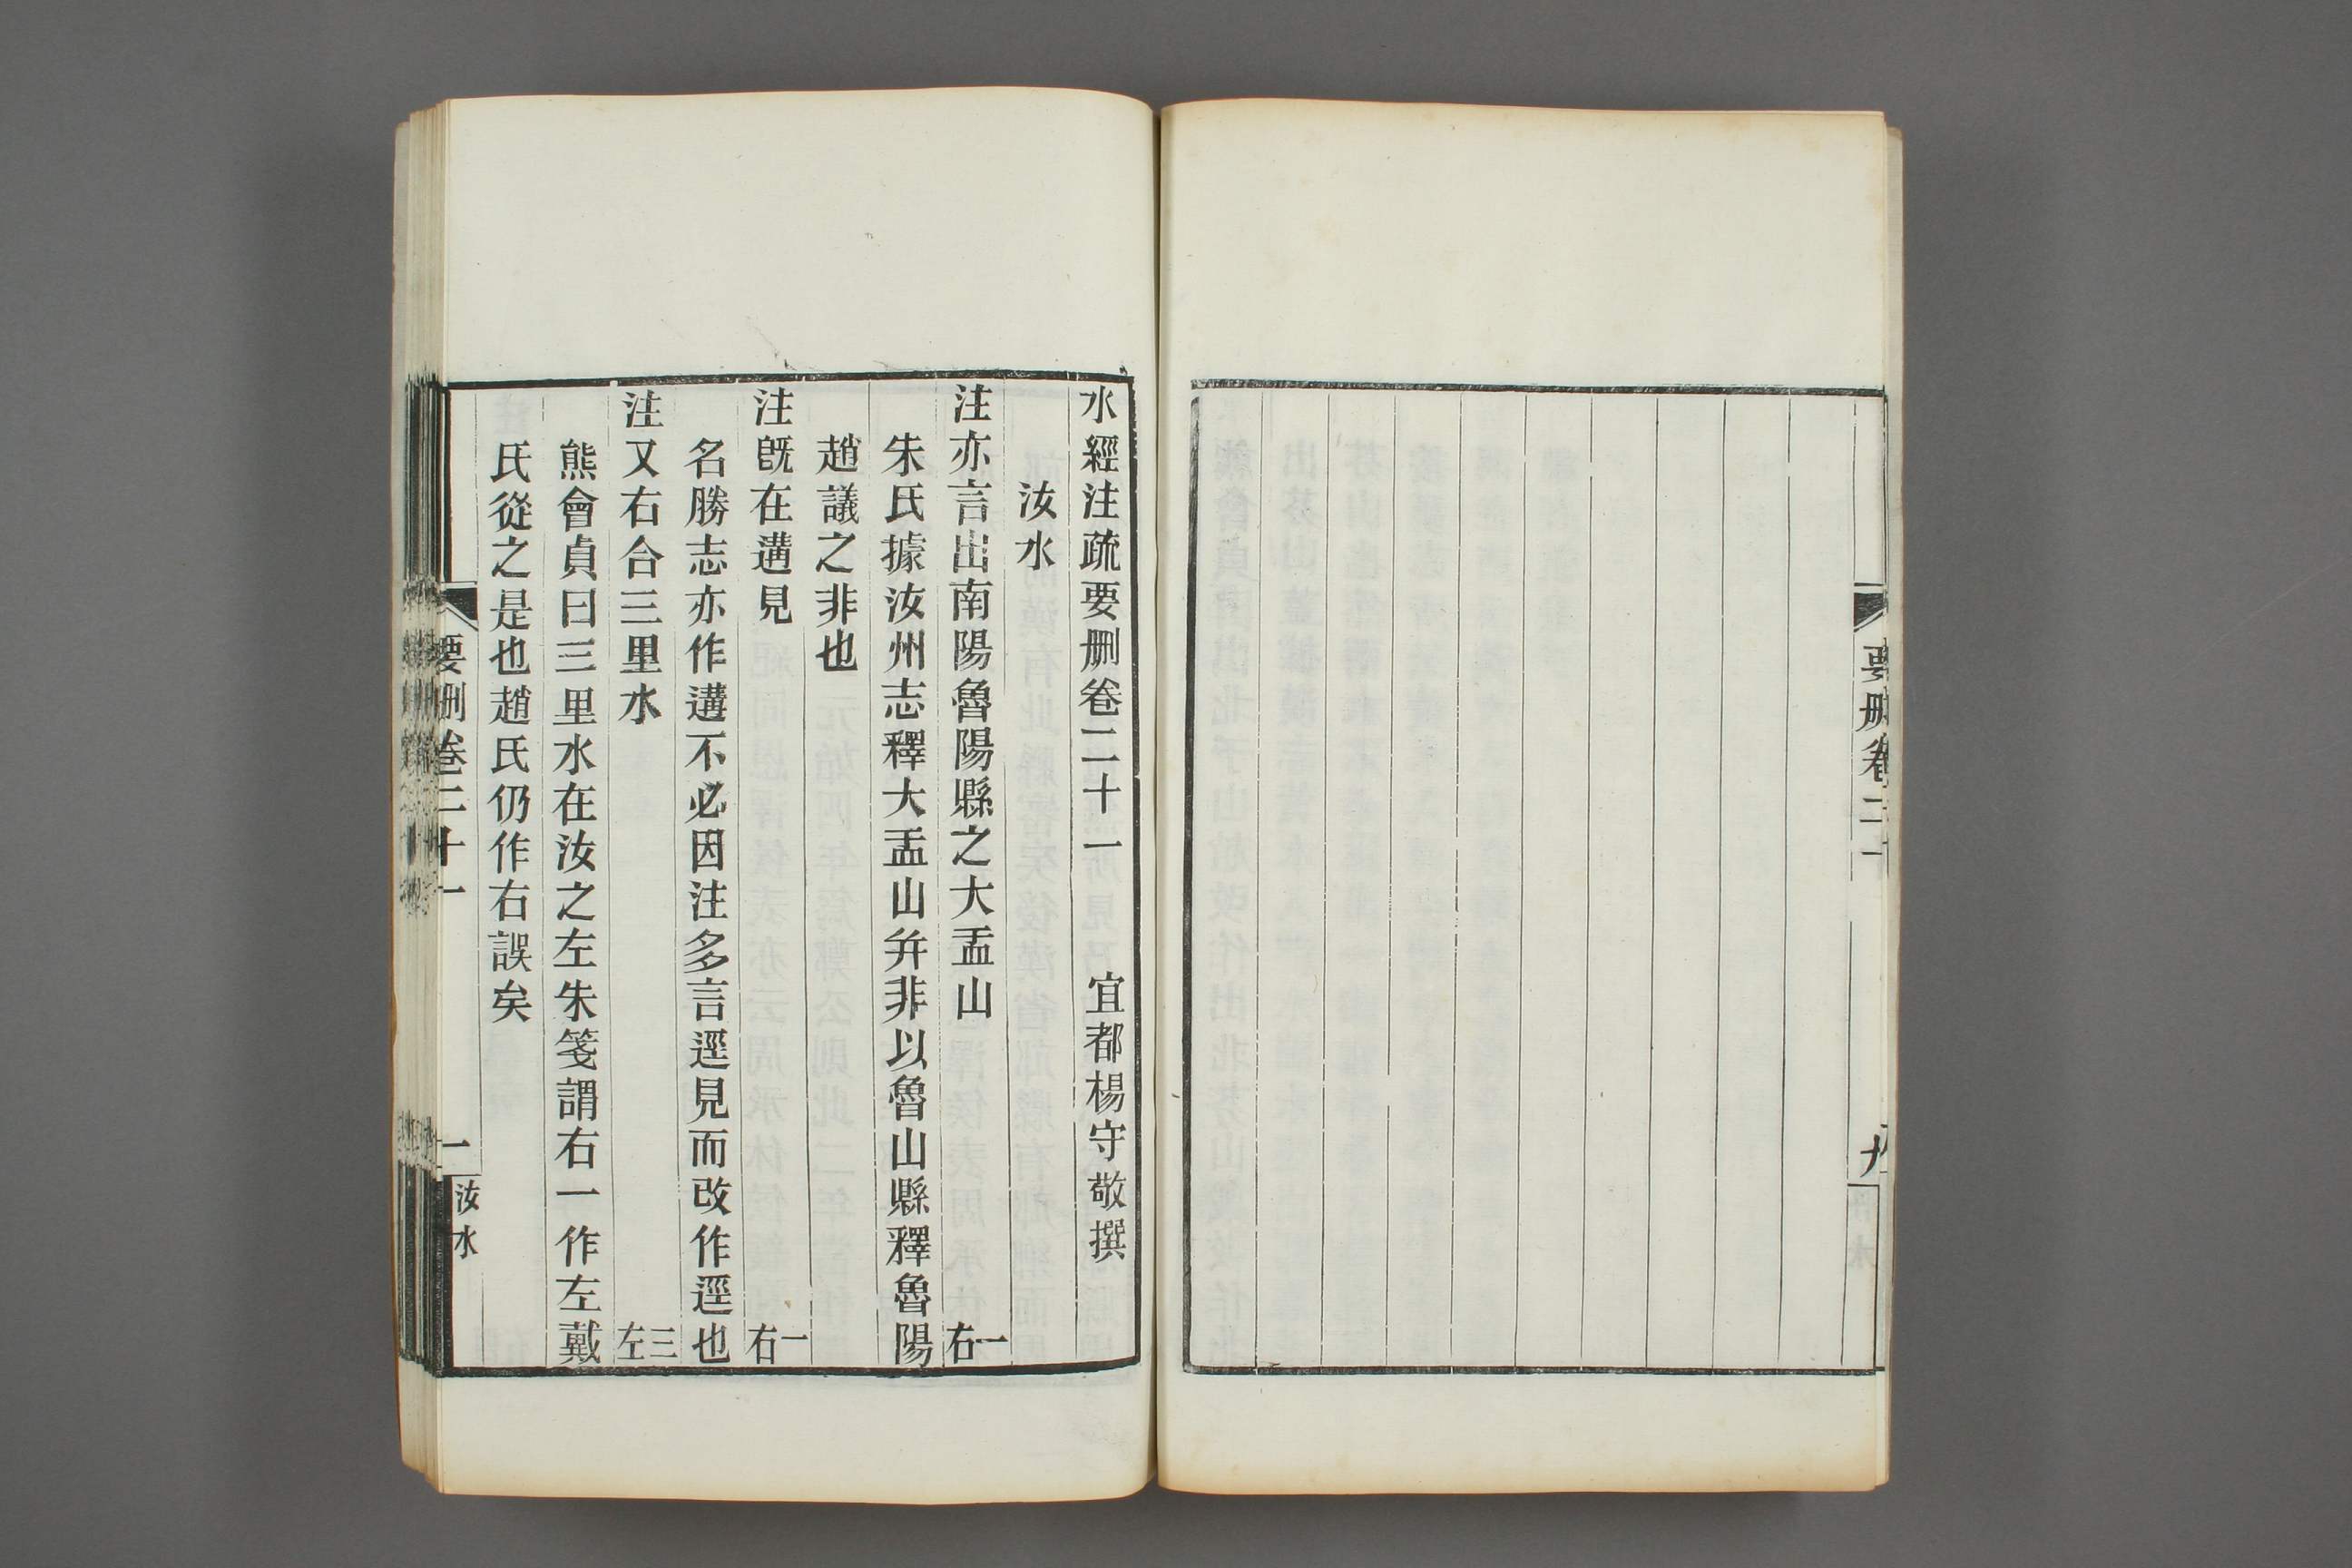 要刪卷二十
九
水經注疏要刪卷二十一 宜都楊守敬撰
汝水
注亦言出南陽魯陽縣之大盂山 一右
朱氏據汝州志釋大盂山幷非以魯山縣釋魯陽
趙議之非也
注旣在遘見 一右
名勝志亦作遘不必因注多言逕見而改作逕也
注又右合三里水 三左
熊會貞曰三里水在汝之左朱箋謂右一作左戴
氏從之是也趙氏仍作右誤矣
要刪卷二十一
一
汝水